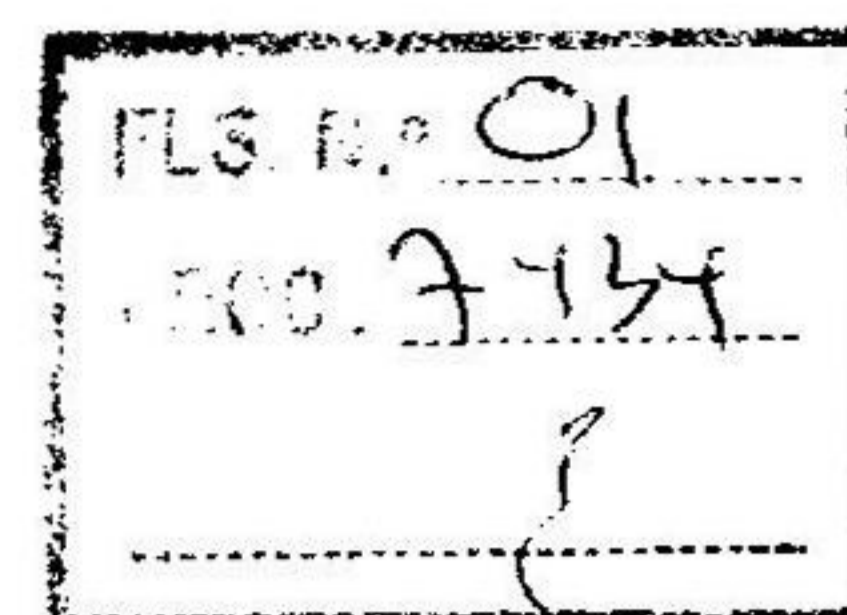 FLS. N.º 01
PROC. 7434